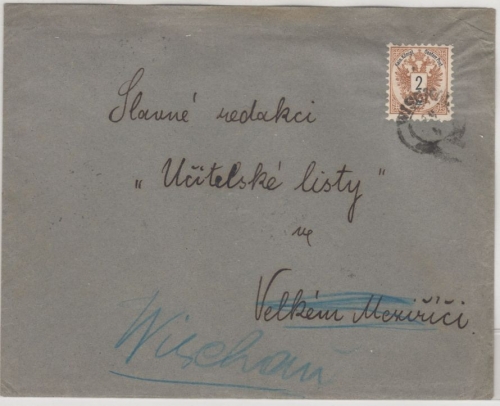 2
Slavné redakci
„Učitelské listy"
ve
Velkém Meziříčí.
Wischau